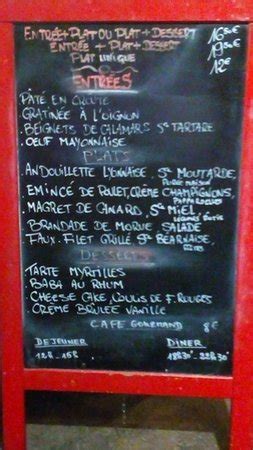 ENTRÉE+PLAT OU PLAT+DESSERT 16,50€
ENTRÉE + PLAT + DESSERT 19,50€
PLAT UNIQUE 12€
ENTRÉES
PATÉ EN CROUTE
GRATINÉE À L'OIGNON
BEIGNETS DE CALAMARS SCE TARTARE
.OEUF MAYONNAISE
PLATS
.ANDOUILLETTE LYONNAISE, SCE MOUTARDE,
PURÉE MAISON
.EMINCÉ DE POULET, CRÈME CHAMPIGNONS,
PAPPARDELLES
.MAGRET DE CANARD, SCE MIEL,
LÉGUMES
.BRANDADE DE MORUE, SALADE
.FAUX-FILET GRILLÉ SCE BÉARNAISE,
FRITES
DESSERTS
.TARTE MYRTILLES
.BABA AU RHUM
.CHEESE CAKE, COULIS DE F. ROUGES
.CRÈME BRÛLÉE VANILLE
CAFE GOURMAND 8€
DEJEUNER DINER
12H-15H 18H30-22H30